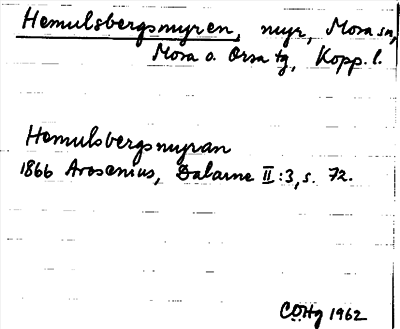 Hemulsbergsmyren, myr, Mora sn,
Mora o. Orsa tg, Kopp. l.
Hemulsbergsmyran
1866 Arosenius, Dalarne II:3, s. 72.
COHg 1962